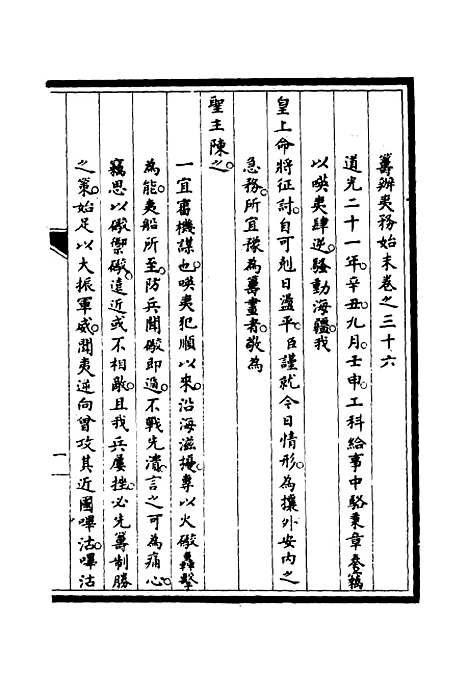 籌辦夷務始末卷之三十六
道光二十一年辛丑九月壬申工科給事中駱秉章奏竊
以𠸄夷肆逆騷動海疆我
皇上命將征討自可剋日盪平臣謹就今日情形為攘外安內之
急務所宜豫為籌畫者敬為
聖主陳之
一宜審機謀也𠸄夷犯順以來沿海滋擾專以火礮轟擊
為能夷船所至防兵聞礮即過不戰先潰言之可為痛心
竊思以礮禦礮遠近或不相敵且我兵屢挫必先籌制勝
之策始足以大振軍威聞夷逆向曾攻其近國嗶沽嗶沽
一